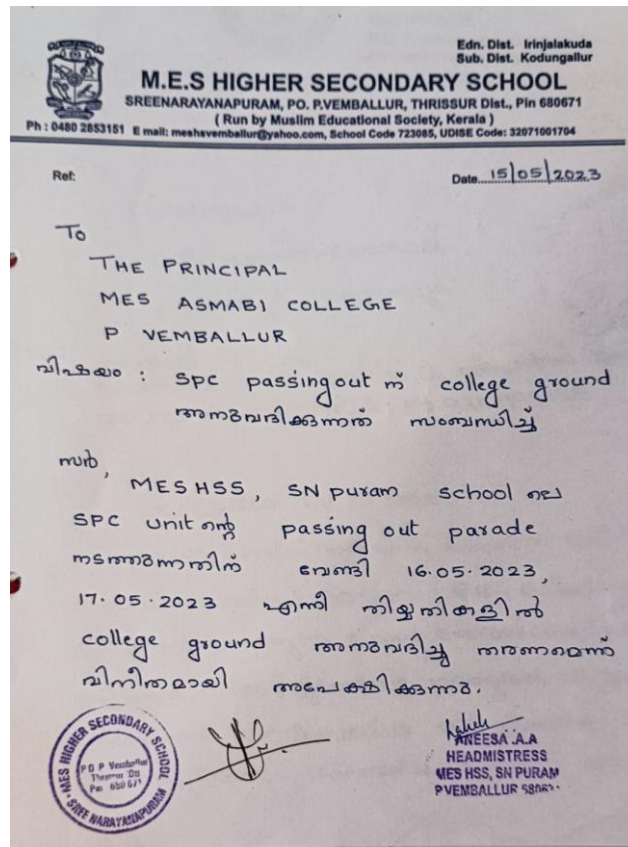 Edn. Dist. Irinjalakuda
Sub. Dist. Kodungallur
M.E.S HIGHER SECONDARY SCHOOL
SREENARAYANAPURAM, PO. P.VEMBALLUR, THRISSUR Dist., Pin 680671
( Run by Muslim Educational Society, Kerala )
Ph : 0480 2853151 E mail: meshsvemballur@yahoo.com, School Code 723085, UDISE Code: 32071001704
Ref: Date 15/05/2023
To
THE PRINCIPAL
MES ASMABI COLLEGE
P VEMBALLUR
വിഷയം : SPC passingout ന് college ground
അനുവദിക്കുന്നത് സംബന്ധിച്ച്
സർ,
MES HSS, SN puram school ലെ
SPC unit ന്റെ passing out parade
നടത്തുന്നതിന് വേണ്ടി 16.05.2023,
17.05.2023 എന്നീ തിയ്യതികളിൽ
college ground അനുവദിച്ചു തരണമെന്ന്
വിനീതമായി അപേക്ഷിക്കുന്നു.
MES HIGHER SECONDARY SCHOOL
P O P Vemballur
Pin 680671
SREE NARAYANAPURAM
ANEESA .A.A
HEADMISTRESS
MES HSS, SN PURAM
P.VEMBALLUR